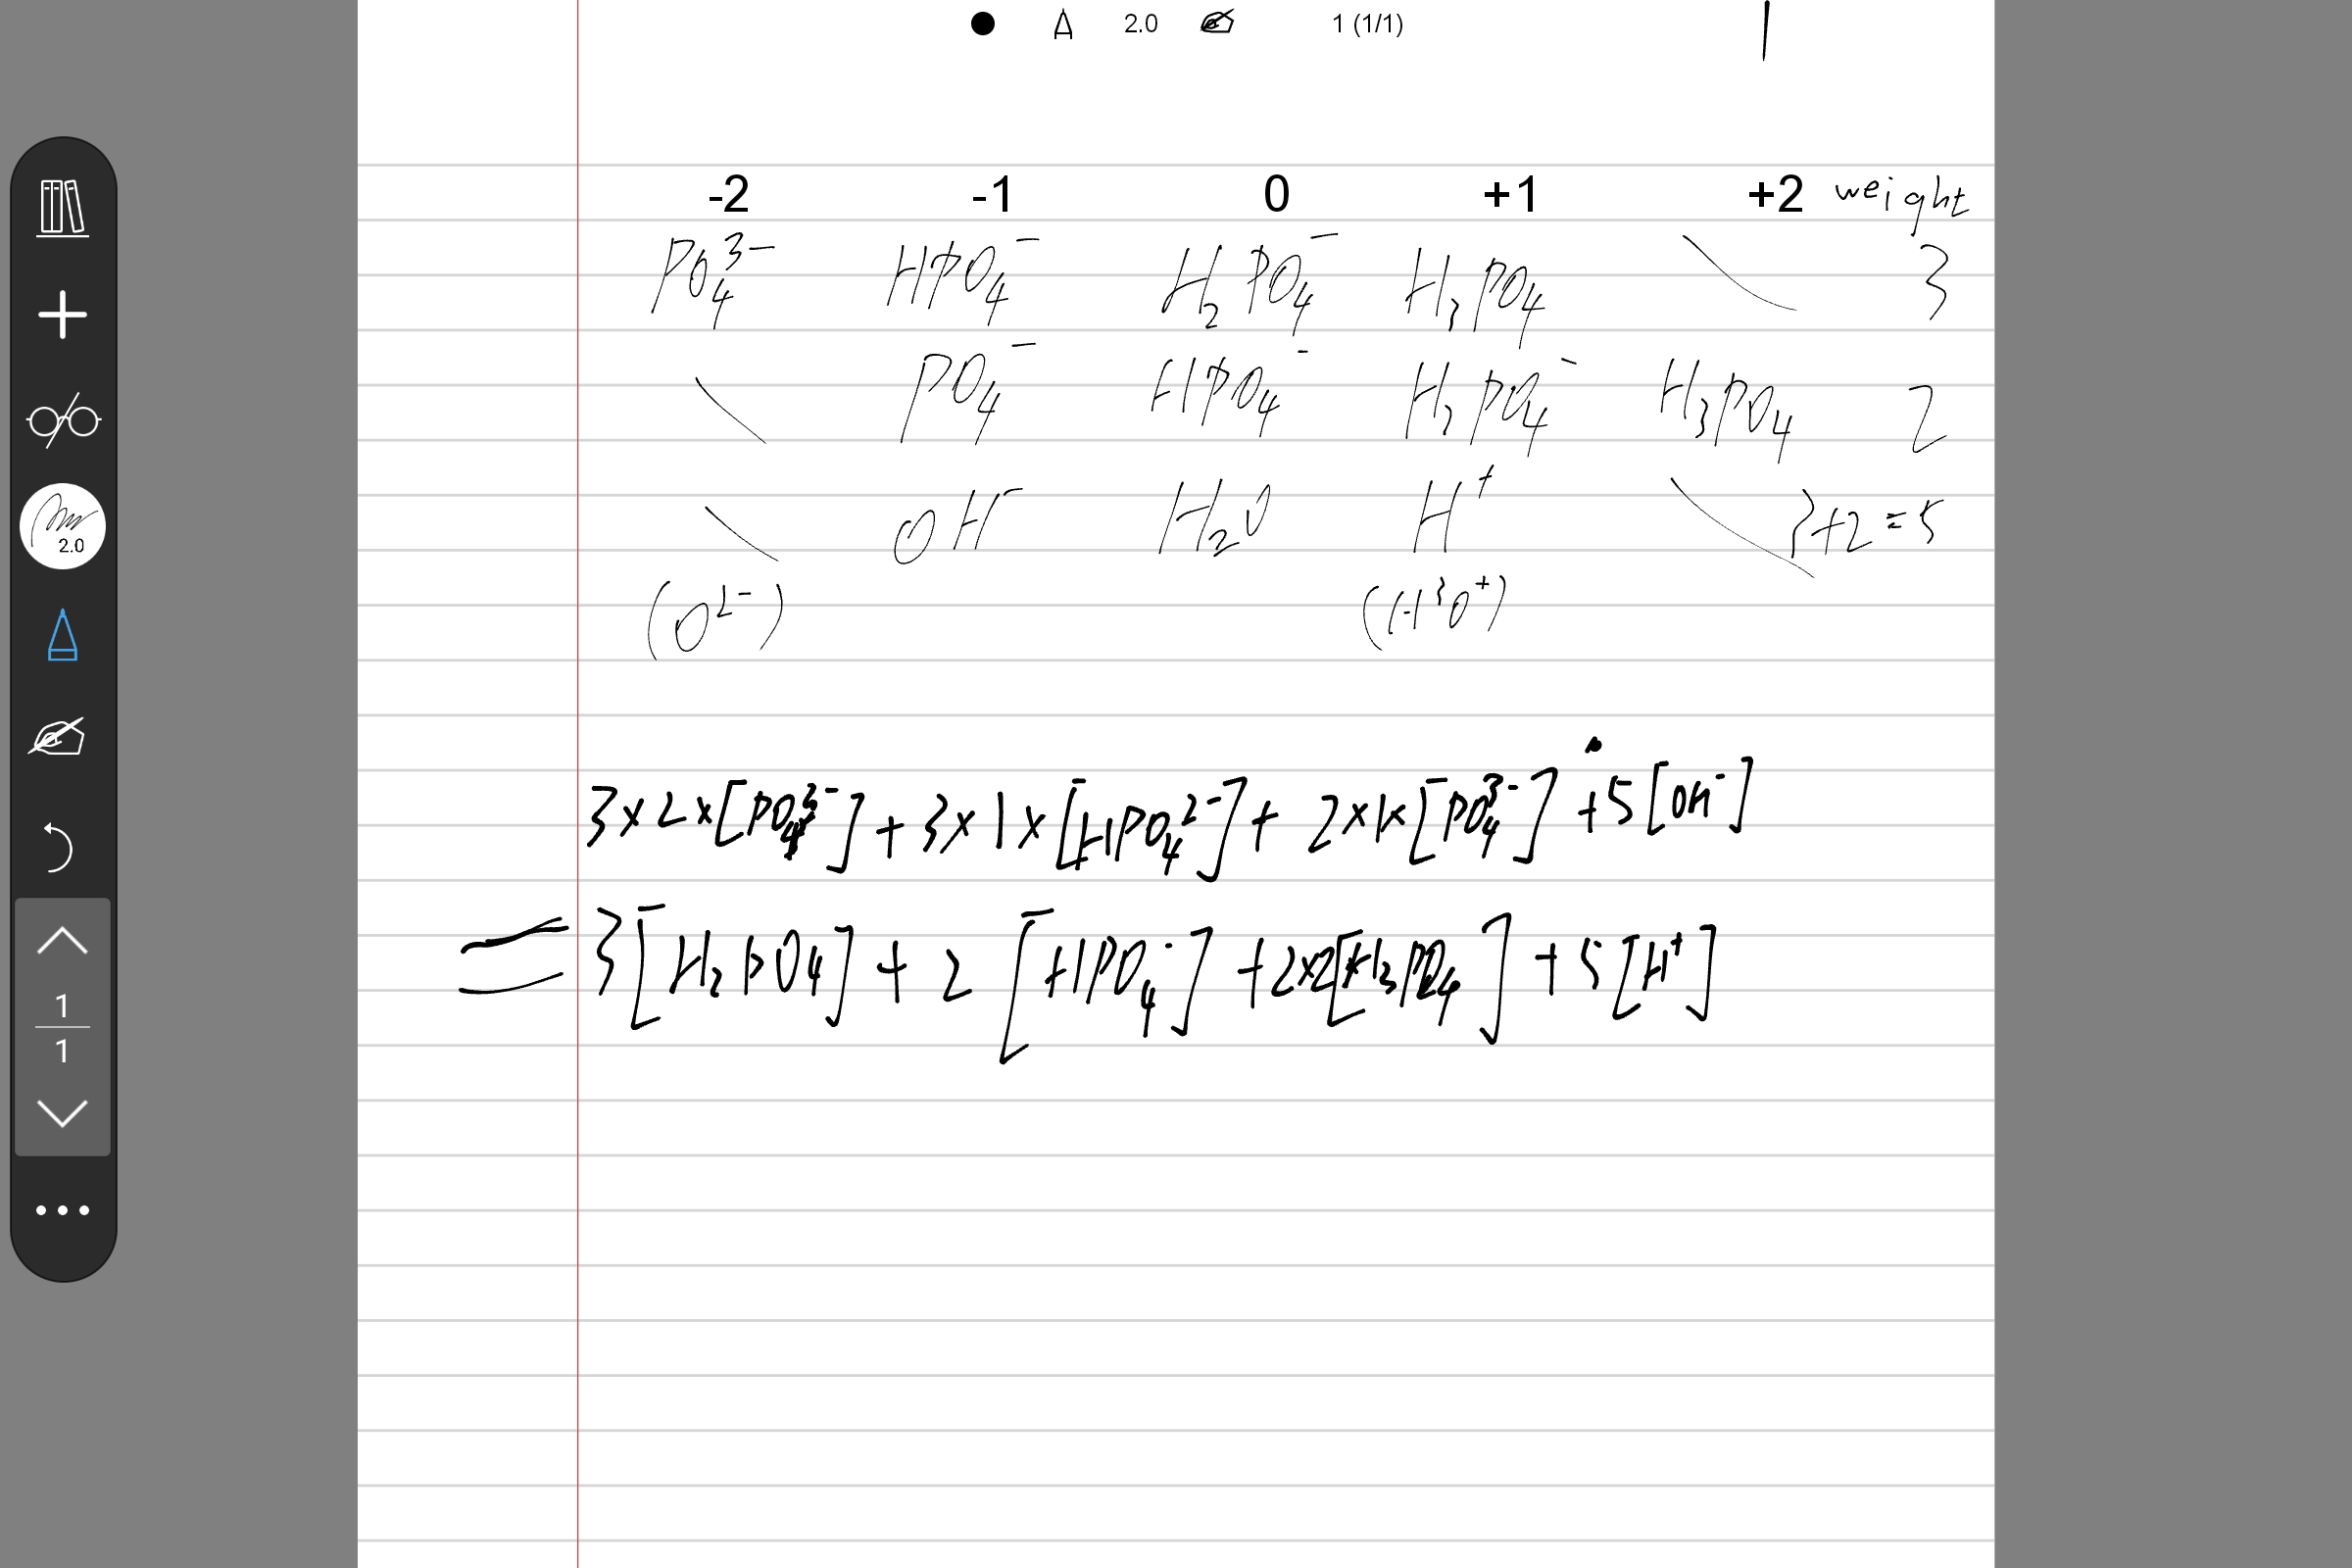 2.0 1 (1/1)
-2 -1 0 +1 +2 weight
PO₄³⁻ HPO₄⁻ H₂PO₄⁻ H₃PO₄ \ 3
\ PO₄⁻ HPO₄⁻ H₃PO₄⁻ H₃PO₄ 2
\ OH⁻ H₂O H⁺ \ 3+2=5
(O²⁻) (H³O⁺)
3×2×[PO₄³⁻]+3×1×[HPO₄²⁻]+2×1×[PO₄³⁻]+5[OH⁻]
=3[H₃PO₄]+2[HPO₄⁻]+2×2[H₃PO₄]+5[H⁺]
2.0
1
1